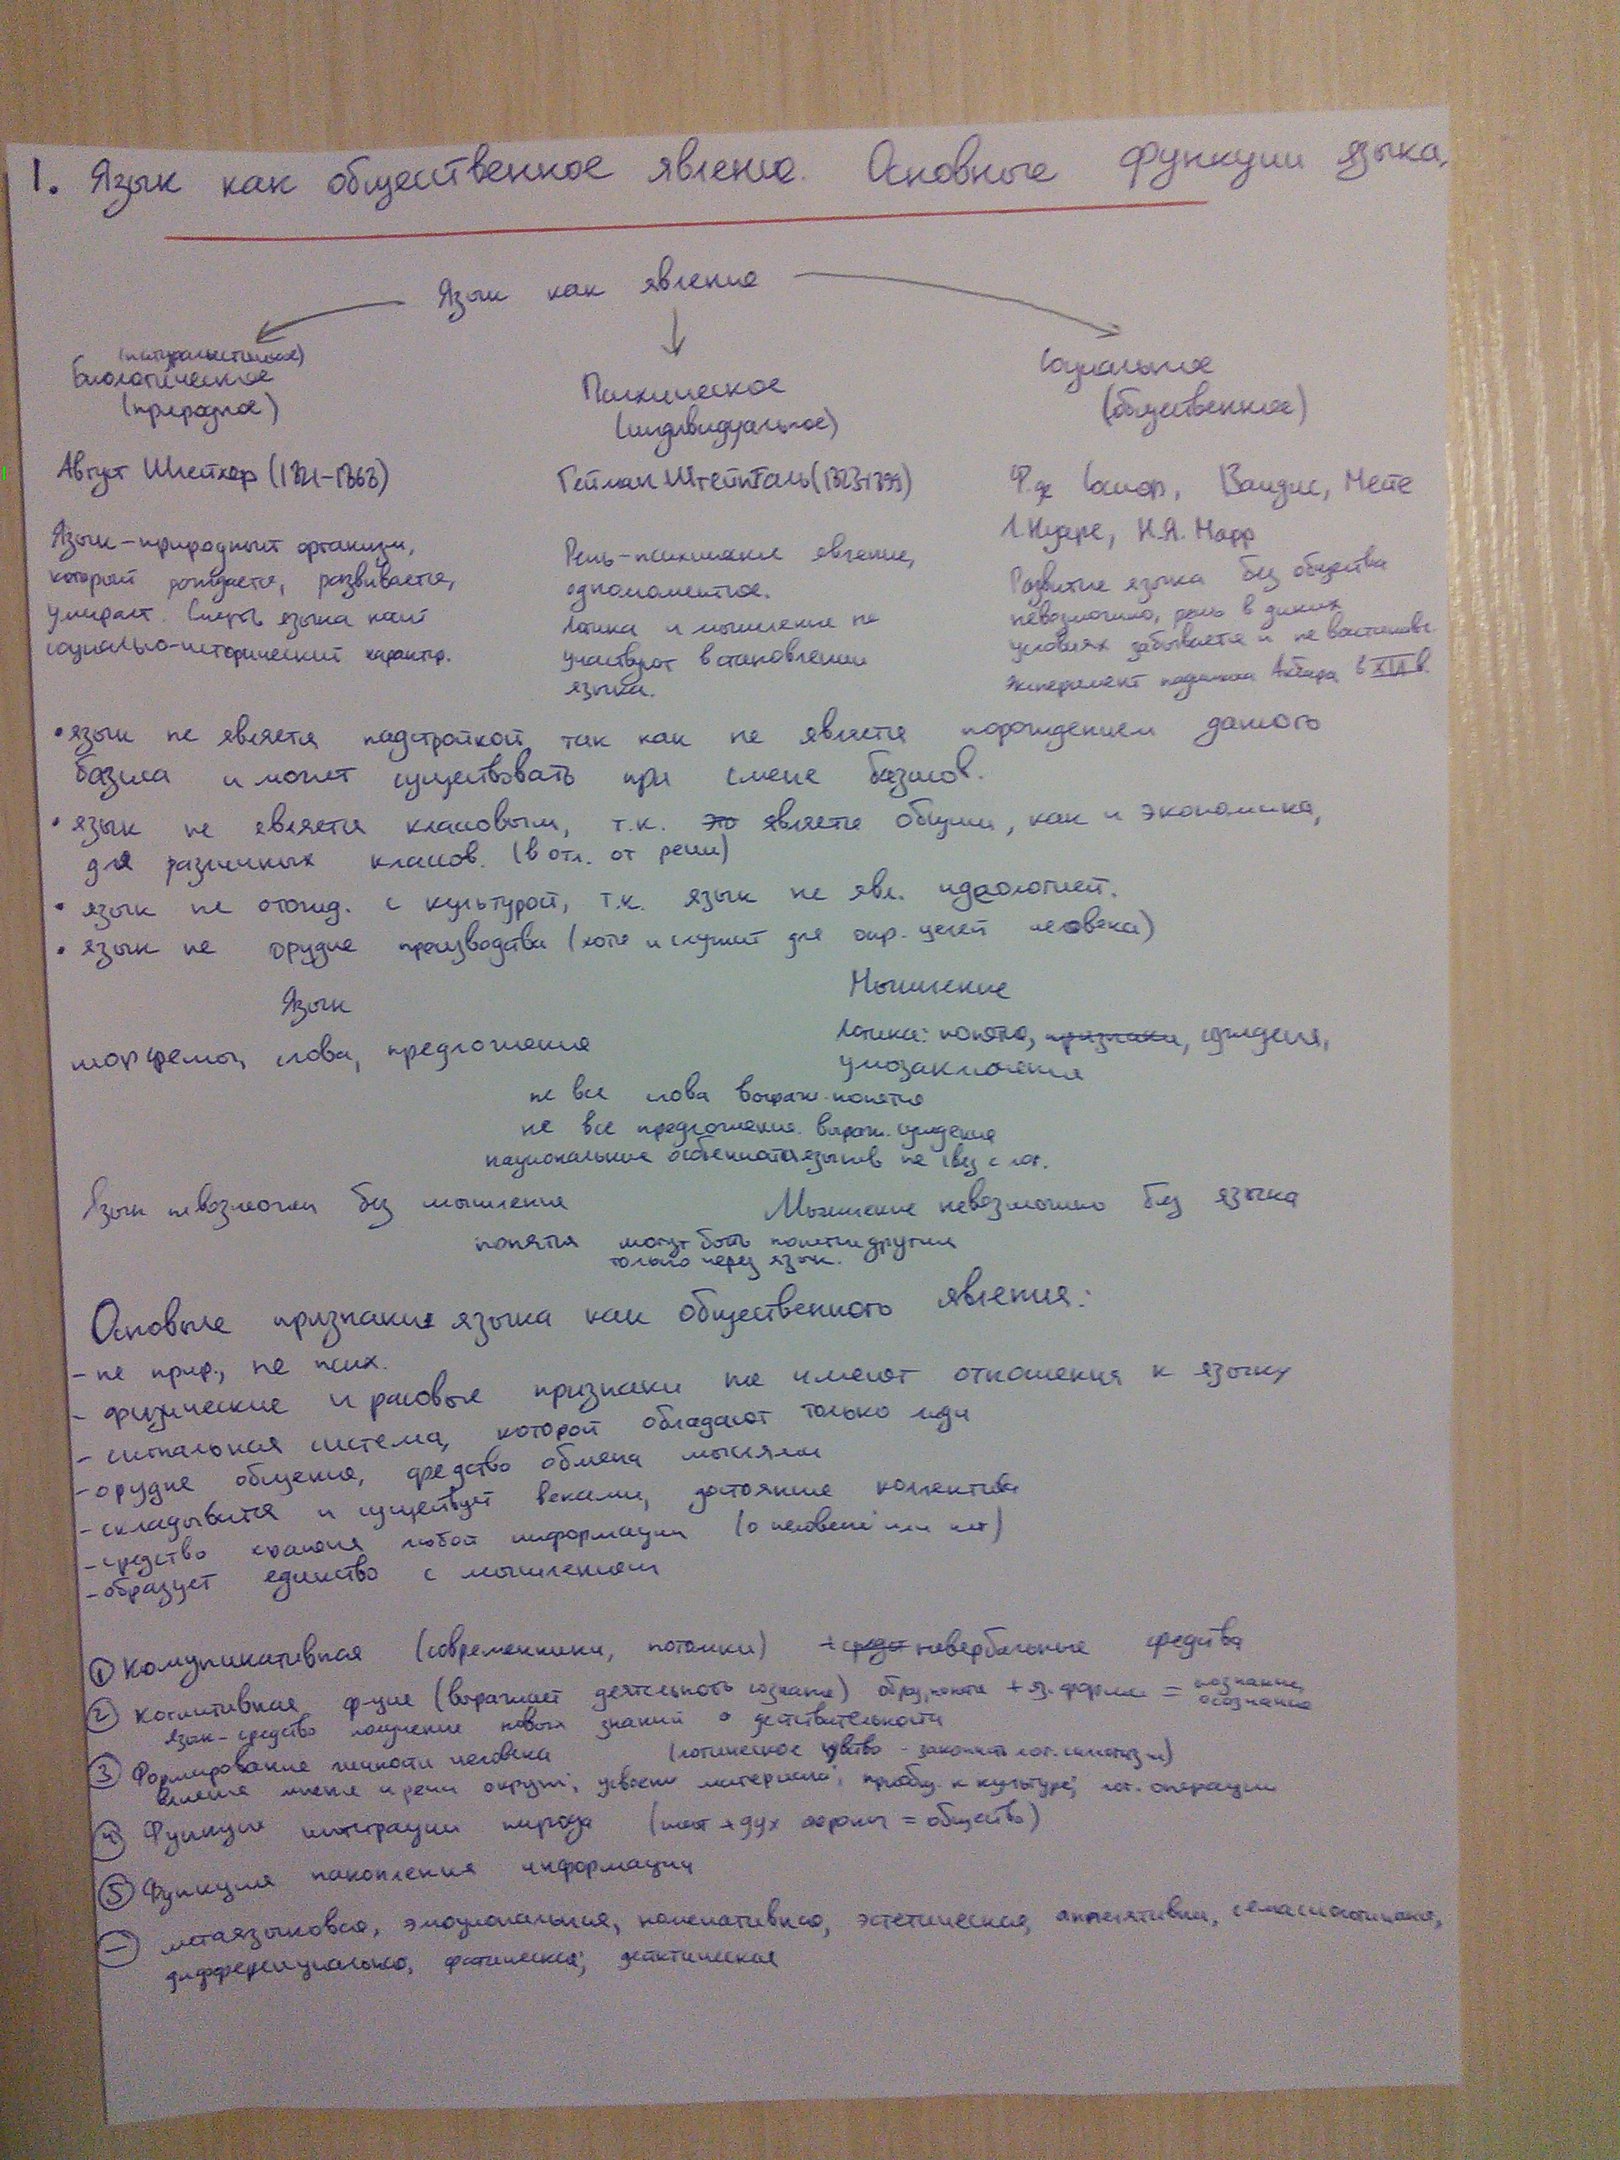 1. Язык как общественное явление. Основные функции языка.
Язык как явление
(натуралистическое)
Биологическое
(природное)
Психическое
(индивидуальное)
Социальное
(общественное)
Август Шлейхер (1821-1868)
Гейман Штейнталь (1823-1899)
Ф. де Соссюр, Вандис, Мейе
Л. Нуаре, Н.Я. Марр
Язык – природный организм,
который рождается, развивается,
умирает. Смерть языка носит
социально-исторический характер.
Речь – психическое явление,
одномоментное.
Логика и мышление не
участвуют в становлении
языка.
Развитие языка без общества
невозможно, речь в диких
условиях забывается и не восстановл.
Эксперимент падишаха Акбара в XVI в.
• язык не является надстройкой так как не является порождением данного
базиса и может существовать при смене базисов.
• язык не является классовым, т.к. является общим, как и экономика,
для различных классов. (в отл. от речи)
• язык не отожд. с культурой, т.к. язык не явл. идеологией.
• язык не орудие производства (хотя и служит для опр. целей человека)
Язык
Мышление
морфемы, слова, предложения
Логика: понятия, признаки, суждения,
умозаключения
не все слова выраж. понятия
не все предложения выраж. суждения
национальные особенности языков не связ с лог.
Язык невозможен без мышления
Мышление невозможно без языка
понятия могут быть поняты другими
только через язык.
Основные признаки языка как общественного явления:
- не прир., не псих.
- физические и расовые признаки не имеют отношения к языку
- сигнальная система, которой обладают только люди
- орудие общения, средство обмена мыслями
- складывается и существует веками, достояние коллектива
- средство хранения любой информации (о человеке или нет)
- образует единство с мышлением
① Комуникативная (современники, потомки) + невербальные средства
② Когнитивная ф-ция (выражает деятельность сознания) + яз. форма = познание,
осознание
язык – средство получения новых знаний о действительности
③ Формирование личности человека (логическое чувство - законы
влияние и речи окруж; усвоение материала; приобщ. к культуре; лог. операции
④ Функция интеграции народа (мат + дух = общество)
⑤ Функция накопления информации
метаязыковая, эмоциональная, номинативная, эстетическая, аппелятивная,
дифференциальная, фатическая; дейктическая